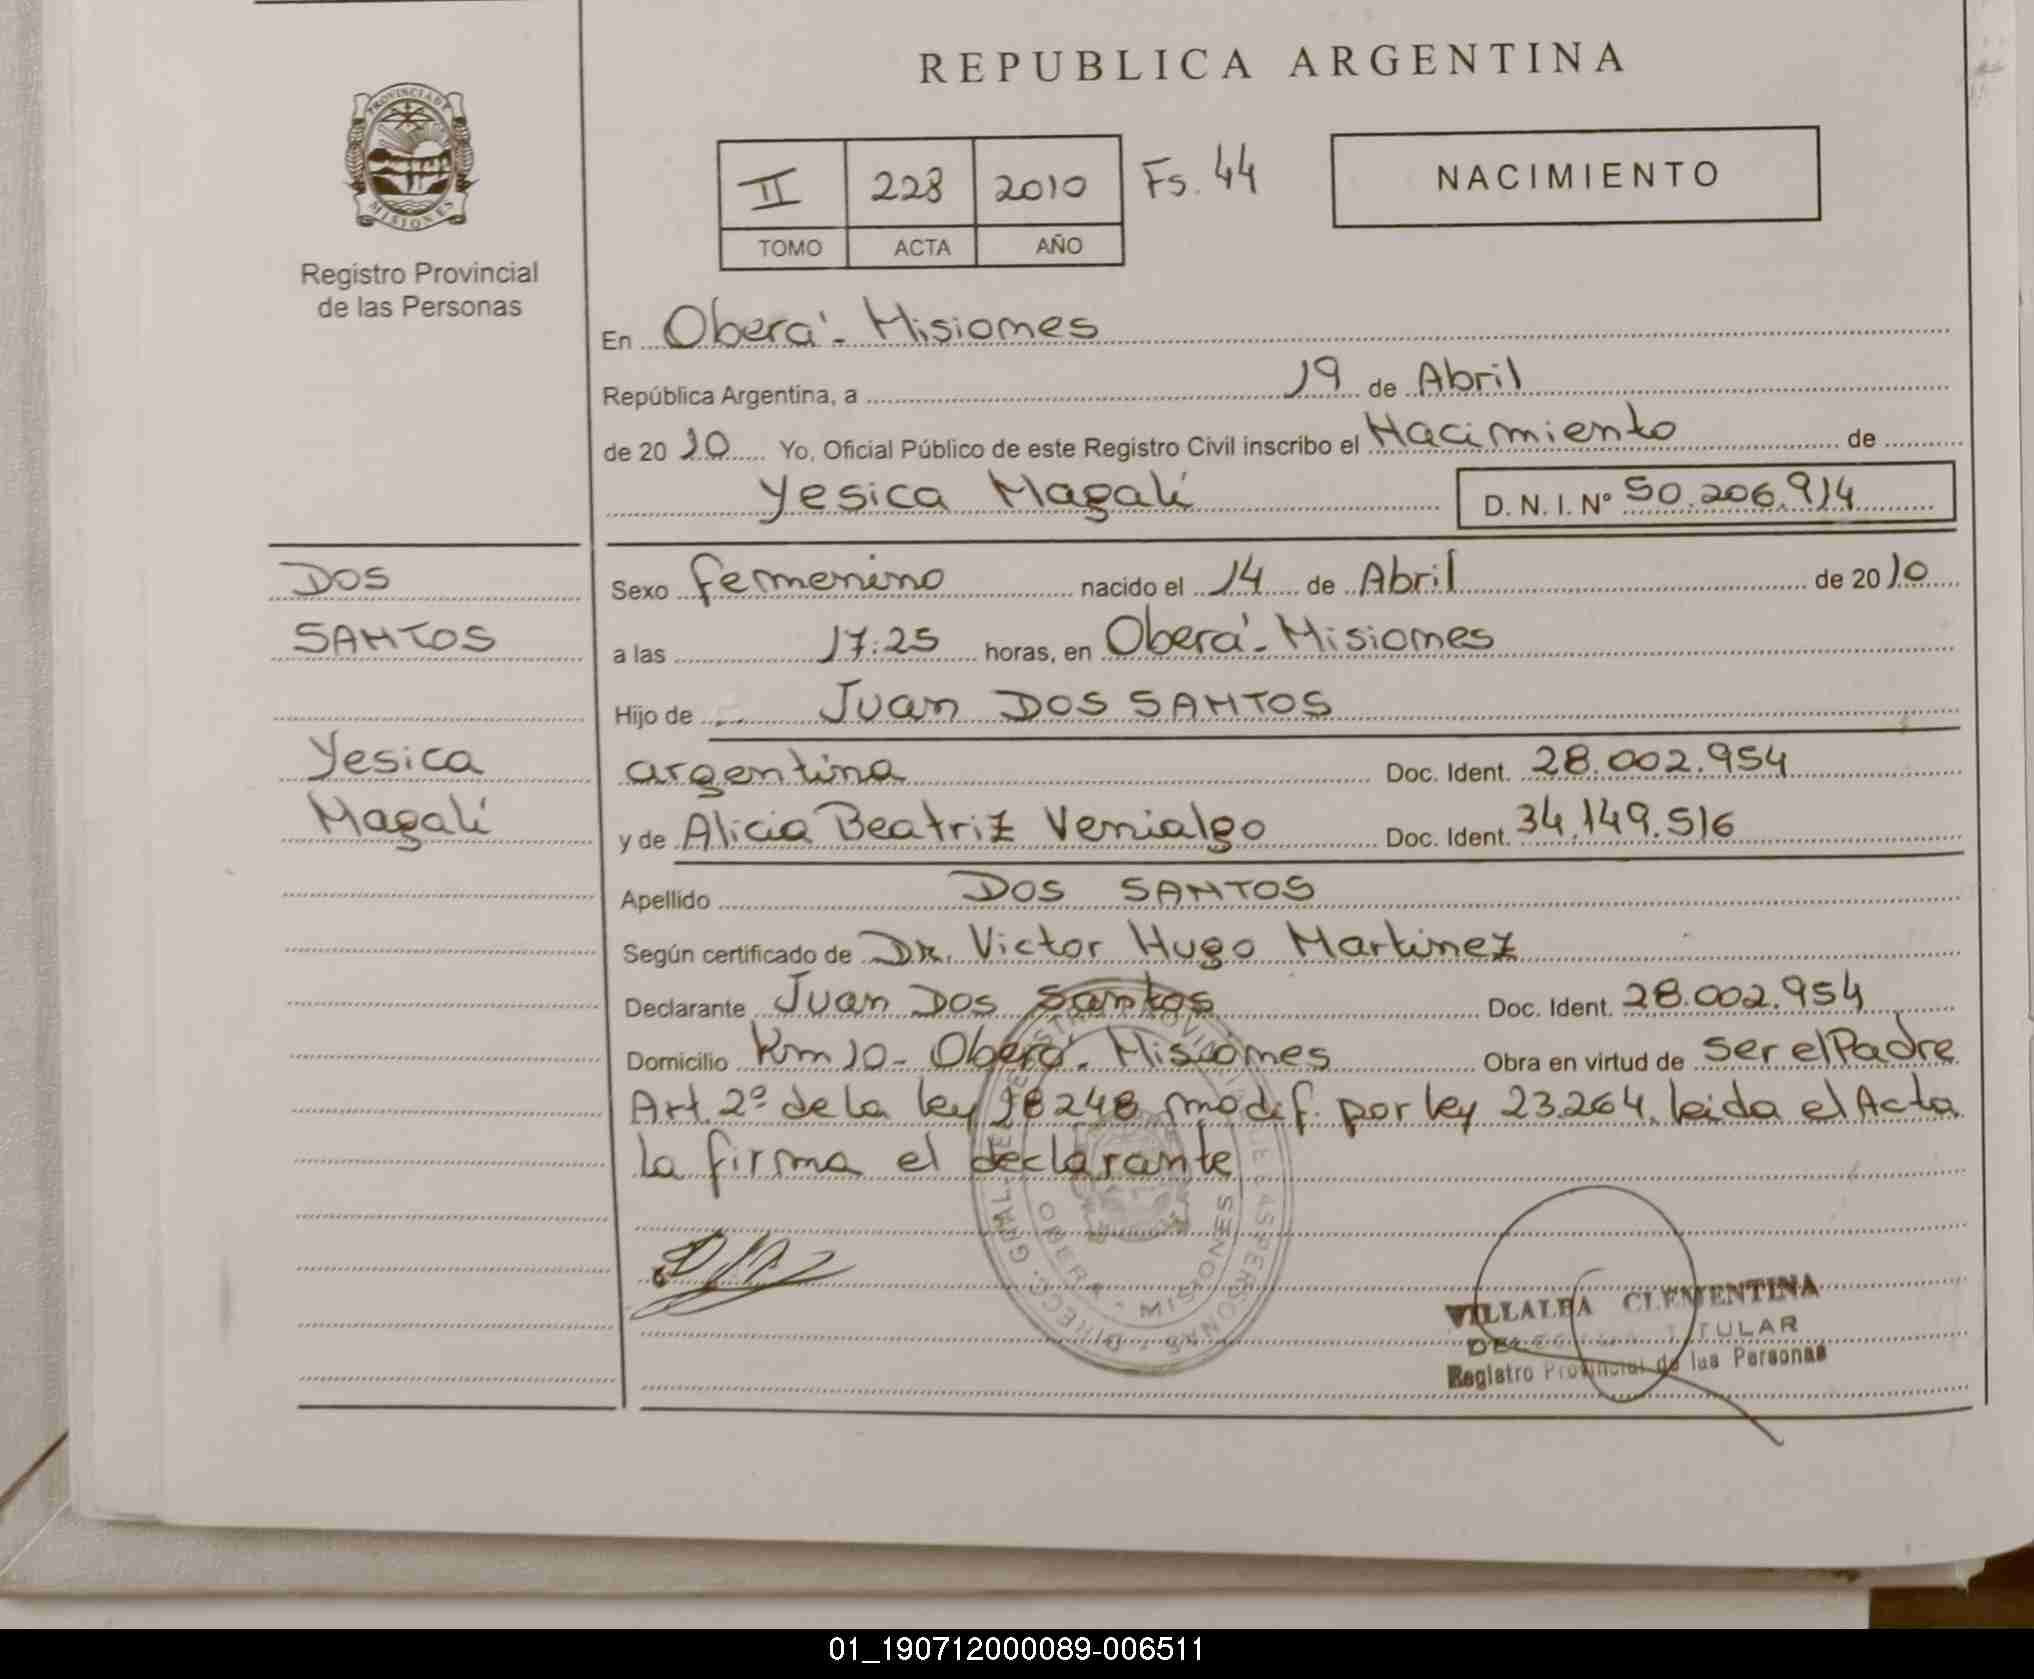 REPUBLICA ARGENTINA
PROVINCIA DE MISIONES
Registro Provincial
de las Personas
II 228 2010 Fs. 44
TOMO ACTA AÑO
NACIMIENTO
En Oberá - Misiones
República Argentina, a 19 de Abril
de 20 10 Yo, Oficial Público de este Registro Civil inscribo el Nacimiento de
Yesica Magalí D. N. I. Nº 50.206.914
DOS
SANTOS
Yesica
Magalí
Sexo femenino nacido el 14 de Abril de 20 10
a las 17:25 horas, en Oberá - Misiones
Hijo de Juan DOS SANTOS
argentina Doc. Ident. 28.002.954
y de Alicia Beatriz Venialgo Doc. Ident. 34.149.516
Apellido DOS SANTOS
Según certificado de Dr. Victor Hugo Martinez
Declarante Juan Dos Santos Doc. Ident. 28.002.954
Domicilio Km 10 - Oberá - Misiones Obra en virtud de ser el Padre
Art. 2º de la ley 18248 modif. por ley 23.264, leida el Acta
la firma el declarante
OBERA - MISIONES
VILLALBA CLEMENTINA
TITULAR
Registro Provincial de las Personas
01_190712000089-006511